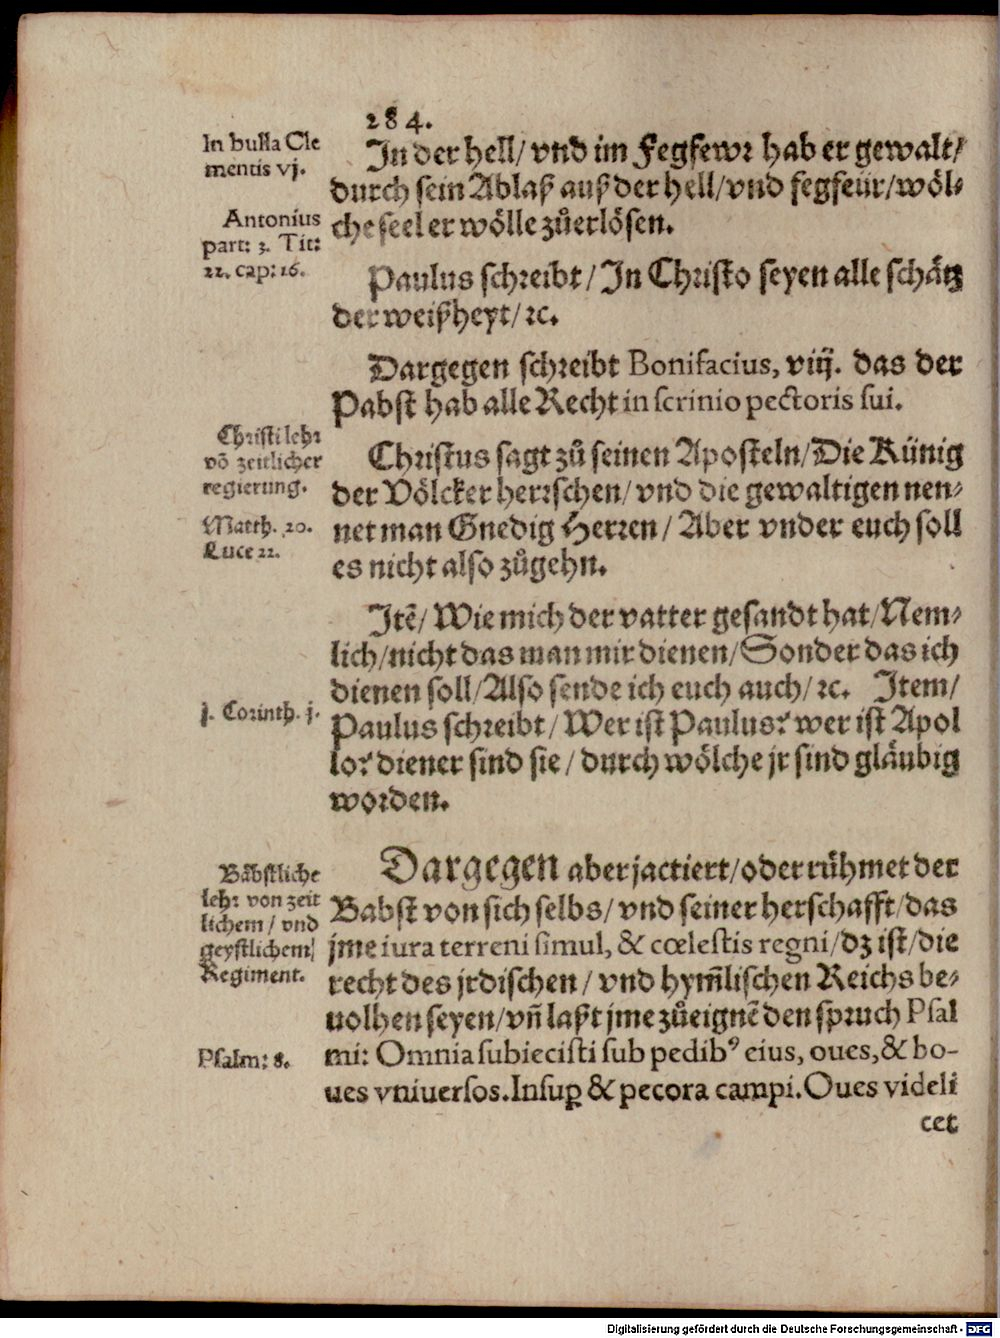 284.
In bulla Cle
mentis vj.
Antonius
part: 3. Tit:
22. cap: 16.
In der hell/ vnd im Fegfewꝛ hab er gewalt/
durch sein Ablaß auß der hell/vnd fegfeür/wöl⸗
che seel er wölle zůerlösen.
Paulus schꝛeibt/ In Chꝛisto seyen alle schätz
der weißheyt/ ꝛc.
Dargegen schꝛeibt Bonifacius, viij. das der
Pabst hab alle Recht in scrinio pectoris sui.
Chꝛisti lehꝛ
võ zeitlicher
regierung.
Matth. 20.
Luce 22.
Chꝛistus sagt zů seinen Aposteln/Die Künig
der Völcker herꝛschen/ vnd die gewaltigen nen⸗
net man Gnedig Herꝛen/ Aber vnder euch soll
es nicht also zůgehn.
Itẽ/ Wie mich der vatter gesandt hat/Nem⸗
lich/nicht das man mir dienen/Sonder das ich
dienen soll/Also sende ich euch auch/ ꝛc. Item/
j. Corinth. j.
Paulus schꝛeibt/ Wer ist Paulus? wer ist Apol
lo? diener sind sie/ durch wölche jr sind gläubig
woꝛden.
Bäbstliche
lehꝛ von zeit
lichem/ vnd
geystlichem/
Regiment.
Dargegen aber jactiert/oder rühmet der
Babst von sich selbs/ vnd seiner herschafft/das
jme iura terreni simul, & cœlestis regni/dz ist/die
recht des jrdischen/ vnd hym̃lischen Reichs be⸗
uolhen seyen/vñ laßt jme zůeignẽ den spꝛuch Psal
Psalm: 8.
mi: Omnia subiecisti sub pedibꝰ eius, oues, & bo-
ues vniuersos. Insuꝑ & pecora campi. Oues videli
cet
Digitalisierung gefördert durch die Deutsche Forschungsgemeinschaft - DFG